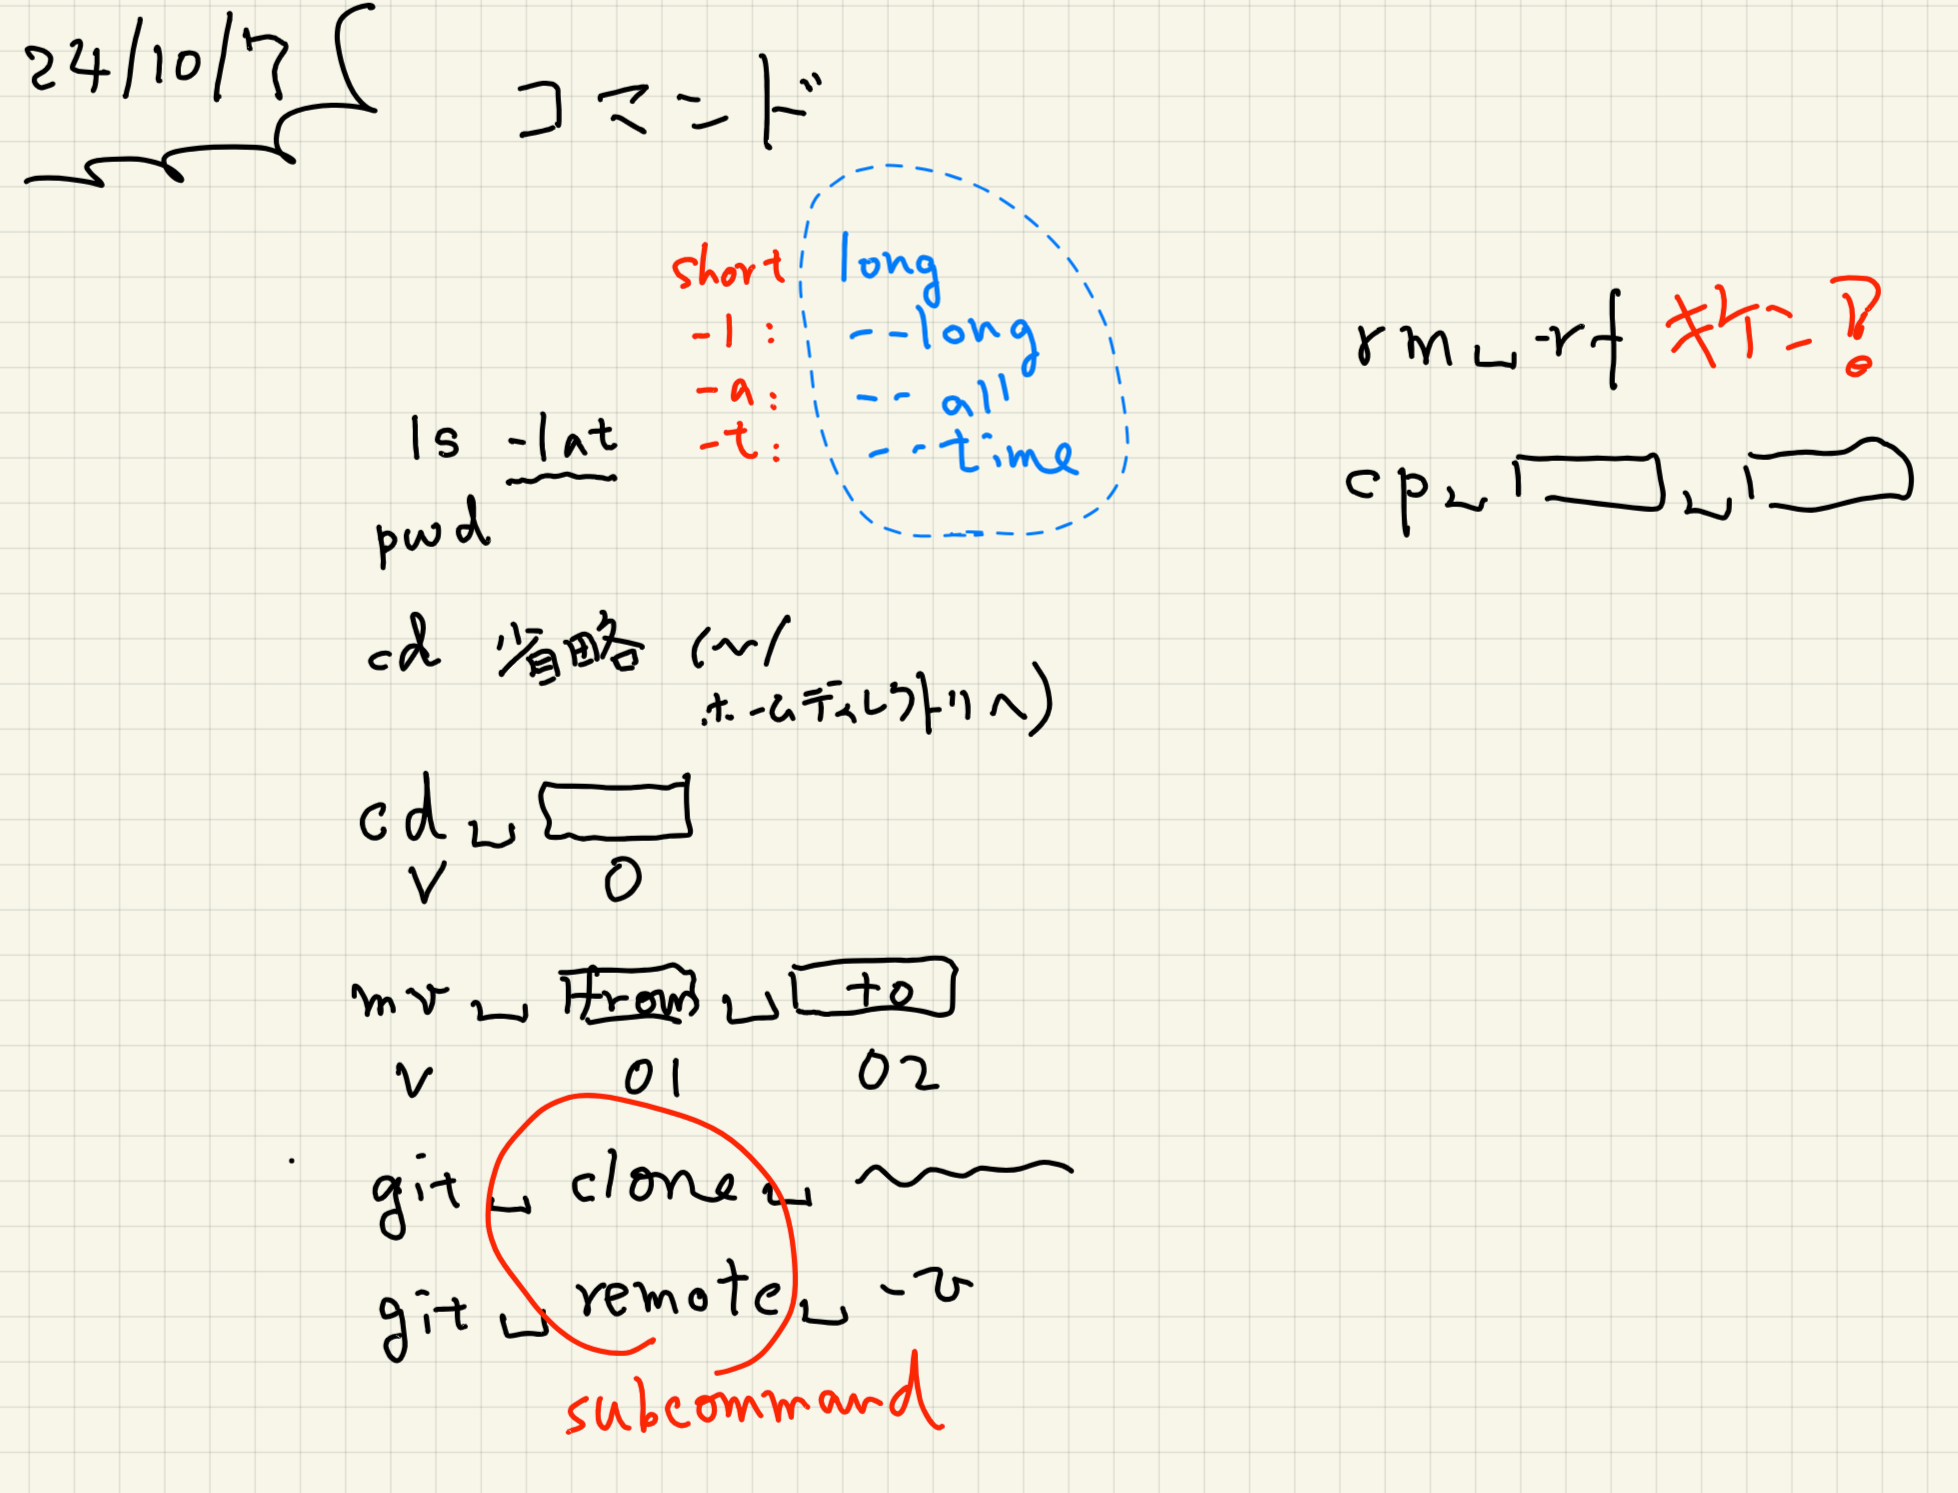 24/10/7
コマンド
short long
-l: --long
-a: --all
-t: --time
ls -lat
pwd
cd 省略 (~/
ホームディレクトリへ)
cd␣
V O
mv␣from␣to
V O1 O2
git␣clone␣
git␣remote␣-v
subcommand
rm␣-rf
cp␣ ␣